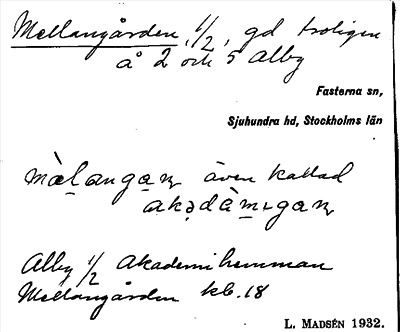 Mellangården, 1/2, gd troligen
å 2 och 5 Alby
Fasterna sn,
Sjuhundra hd, Stockholms län
även kallad
Alby 1/2 Akademihemman
Mellangården kb. 18
L. MADSÉN 1932.